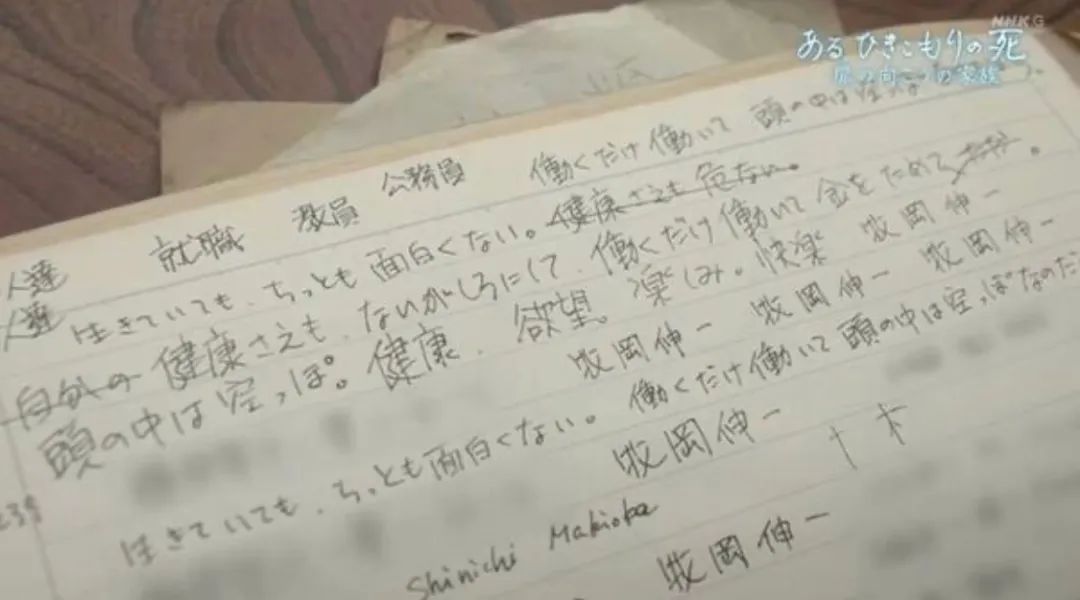 NHK G
あるひきこもりの死
扉の向こうの家族
働くだけ働いて 頭の中は空っぽ
就職 教員 公務員
人達
生きていても、ちっとも面白くない。健康さえも危ない。
人達
自分の健康さえも、ないがしろにして、働くだけ働いて金をためて
頭の中は空っぽ。健康、欲望。楽しみ。快楽 牧岡伸一
牧岡伸一 牧岡伸一 牧岡伸一
生きていても、ちっとも面白くない。働くだけ働いて頭の中は空っぽなのだ
牧岡伸一
Shinichi Makioka
牧岡伸一